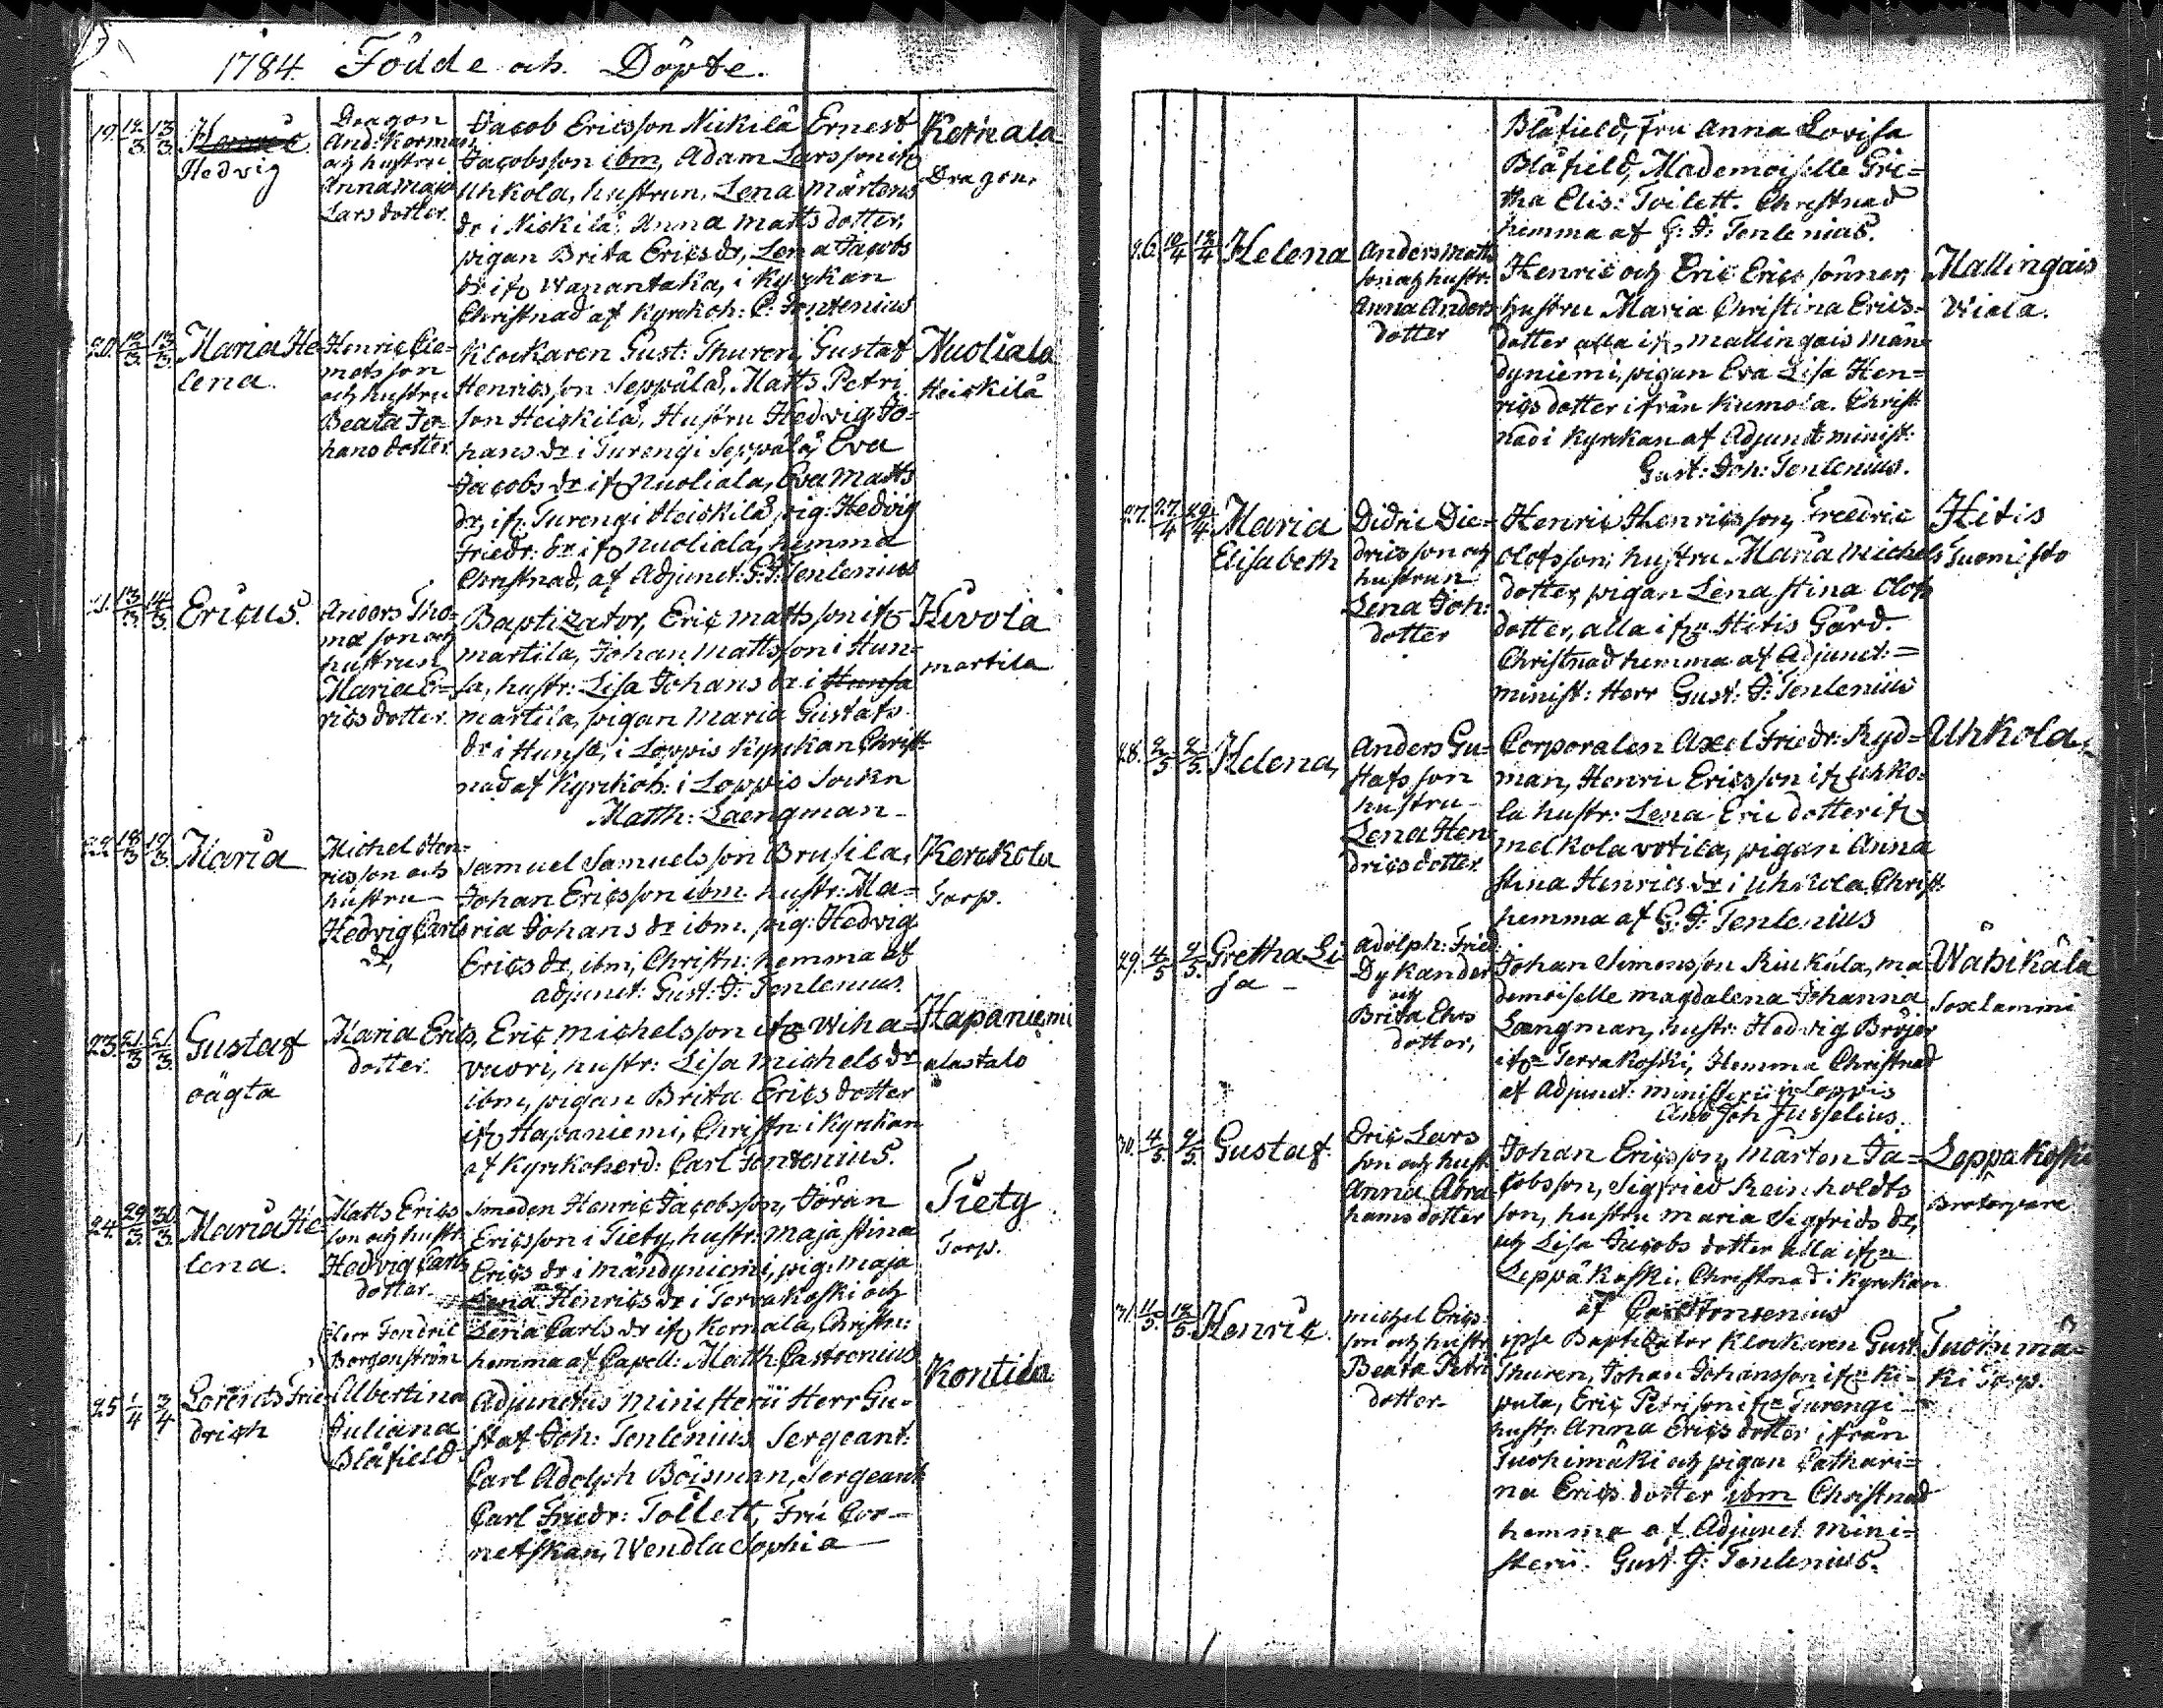 1784. Födde och Döpte.
19. 12/3. 13/3. Henric. Hedvig
Dragon
And: Korman
och hustru
Anna Maja
Lars dotter.
Jacob Ericsson Nickilä Ernest
Jacobsson ibm, Adam Larsson ifr
Uhkola, hustrun, Lena Mårtens
dr i Nickilä, Anna Matts dotter,
pigan Brita Erics dr, Lena Jacobs
dr ifr Wanantaka, i Kyrkan
Christnad af Kyrkoh: C: Fontenius
Kernala
Dragon.
20. 12/3. 13/3. Maria He-
lena.
Henric Cle-
metsson
och hustru
Beata Jo-
hans dotter.
Klockaren Gust: Thuren, Gustaf
Henricsson Seppälä, Matts Petri
son Heickilä, Hustru Hedvig Jo-
hans dr i Turengi Seppälä, Eva
Jacobs dr ifr Nuoliala, Eva Matts
dr, ifr Turengi Heickilä, pig: Hedvig
Friedr: dr ifr Nuoliala, hemma
Christnad, af Adjunct: G: J: Tenlenius
Nuoliala
Heickilä
21. 13/3. 14/3. Ericus.
Anders Tho-
ma son och
hustrun
Maria E-
rics dotter.
Baptizator, Eric Matts son ifr
Martila, Johan Mattsson i Hun-
sa, hustr: Lisa Johans dr i Hunsa
Martila, pigan Maria Gustafs
dr i Hunsa, i Loppis Kyrkan Christ-
nad af Kyrkoh: i Loppis Sockn
Matth: Laengman
Hivola
Martila
22. 18/3 19/3. Maria
Michel Hen-
ricsson och
hustru
Hedvig Carls
dr,
Samuel Samuelsson Brusila,
Johan Ericsson ibm. hustr: Ma-
ria Johans dr ibm. pig: Hedvig
Erics dr, ibm, Christn: hemma af
adjunct: Gust: J: Tenlenius.
Kerckola
Torp.
23. 21/3 21/3. Gustaf
oägta
Maria Erics
dotter.
Eric Michelsson ifr Wiha-
vuori, hustr: Lisa Michels dr
ibm, pigan Brita Erics dotter
ifr Hapaniemi, Christn: i Kyrkan
af Kyrkoherd: Carl Fontenius.
Hapaniemi
alastalo
24. 29/3. 30/3. Maria He
lena.
Matts Erics
son och hustr
Hedvig Carls
dotter.
Smeden Henric Jacobsson, Jöran
Ericsson i Tiety, hustr: Maja Stina
Erics dr i Mändyniemi, pig: Maja
Lena Henrics dr i Tervakoski och
Lena Carls dr ifr Kernala, Christn:
hemma af Capell: Matth Castrenius
Tiety
Torp.
25 1/4 3/4 Lorents Frie-
drich
Herr Fendric
Borgenström
Albertina
Juliana
Blåfield
Adjunctus Ministerii Herr Gu-
staf Joh: Tenlenius Sergeant:
Carl Adolph Boisman, Sergeant
Carl Friedr: Tollett, Fru Cor-
netskan, Wendla Sophia
Kontiala
Blåfield, Fru Anna Lovisa
Blåfield, Mademoiselle Gre-
tha Elis: Toilett. Christnad
hemma af G: J: Tenlenius.
26. 10/4 12/4 Helena
Anders Matts
son och hustr:
Anna Anders
dotter
Henric och Eric Erics sönner,
hustru Maria Christina Erics-
dotter alla ifr Mallingais Män-
dyniemi, pigan Eva Lisa Hen-
rics dotter ifrån Kumola. Christ-
nad i Kyrkan af Adjunct minist:
Gust: Joh: Tenlenius.
Mallingais
Wiala.
27. 27/4 29/4 Maria
Elisabeth
Didric Die-
dricsson och
hustrun
Lena Joh:
dotter
Henric Henricsson, Fredric
Olofsson, hustru Maria Michels
dotter, pigan Lena Stina Olofs
dotter, alla ifrn Hitis Gård.
Christnad hemma af Adjunct:
minist: Herr Gust: J: Tenlenius
Hitis
Suomisto
28. 2/5 2/5. Helena,
Anders Gu-
stafsson
hustru
Lena Hen
drics dotter
Corporalen Axel Friedr: Ryd-
man, Henric Ericsson ifr Uhko-
la hustr: Lena Eric dotter ifr
Melkola Votila, pigan Anna
Stina Henrics dr i Uhkola, Christ-
hemma af G: J: Tenlenius
Uhkola.
29. 4/5 9/5. Gretha Li
sa
Adolph: Fried
Dykander
och
Brita Ehrs
dotter,
Johan Simonsson Riukula, ma-
demoiselle Magdalena Johanna
Laengman, hustr: Hedvig Bröijer
ifrn Tervakoski, Hemma Christnad
af Adjunct: ministerii i Loppis
And Joh Jusselius.
Wåhikälä
Soxlammi
30. 4/5. 9/5. Gustaf
Eric Lars
son och hustr
Anna Abra
hams dotter
Johan Ericsson, Mårten Ja-
cobsson, Sigfried Reinholdts
son, hustru Maria Sigfrids dr,
och Lisa Jacobs dotter alla ifrn
Leppäkoski. Christnad i Kyrckan
af Carl Fontenius
Leppäkoski
31. 11/5. 12/5. Henric
Michel Erics
son och hustr
Beata Petri
dotter.
ipse Baptizator Klockaren Gust
Thuren, Johan Johansson ifrn Ki-
pula, Eric Petrison ifrn Turengi
hustr: Anna Erics dotter ifrån
Tuohimäki och pigan Cathari-
na Erics dotter ibm Christnad
hemma af Adjunct Mini-
sterii. Gust J: Tenlenius.
Tuohimä-
ki Torp.